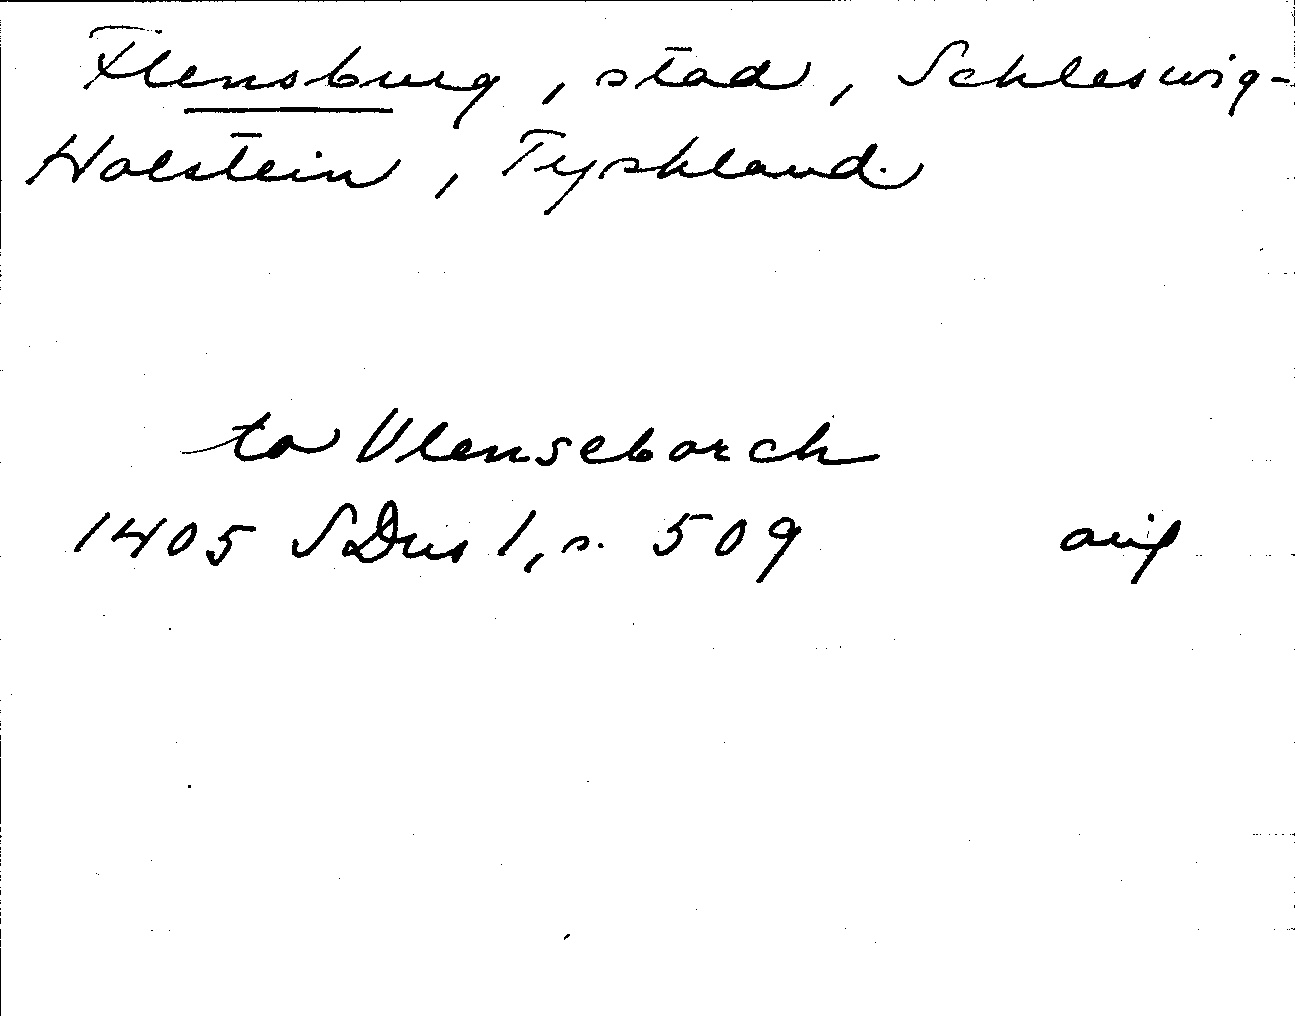 Flensburg, stad, Schleswig-
Holstein, Tyskland.
to Vlenseborch
1405 SDns 1, s. 509 avs